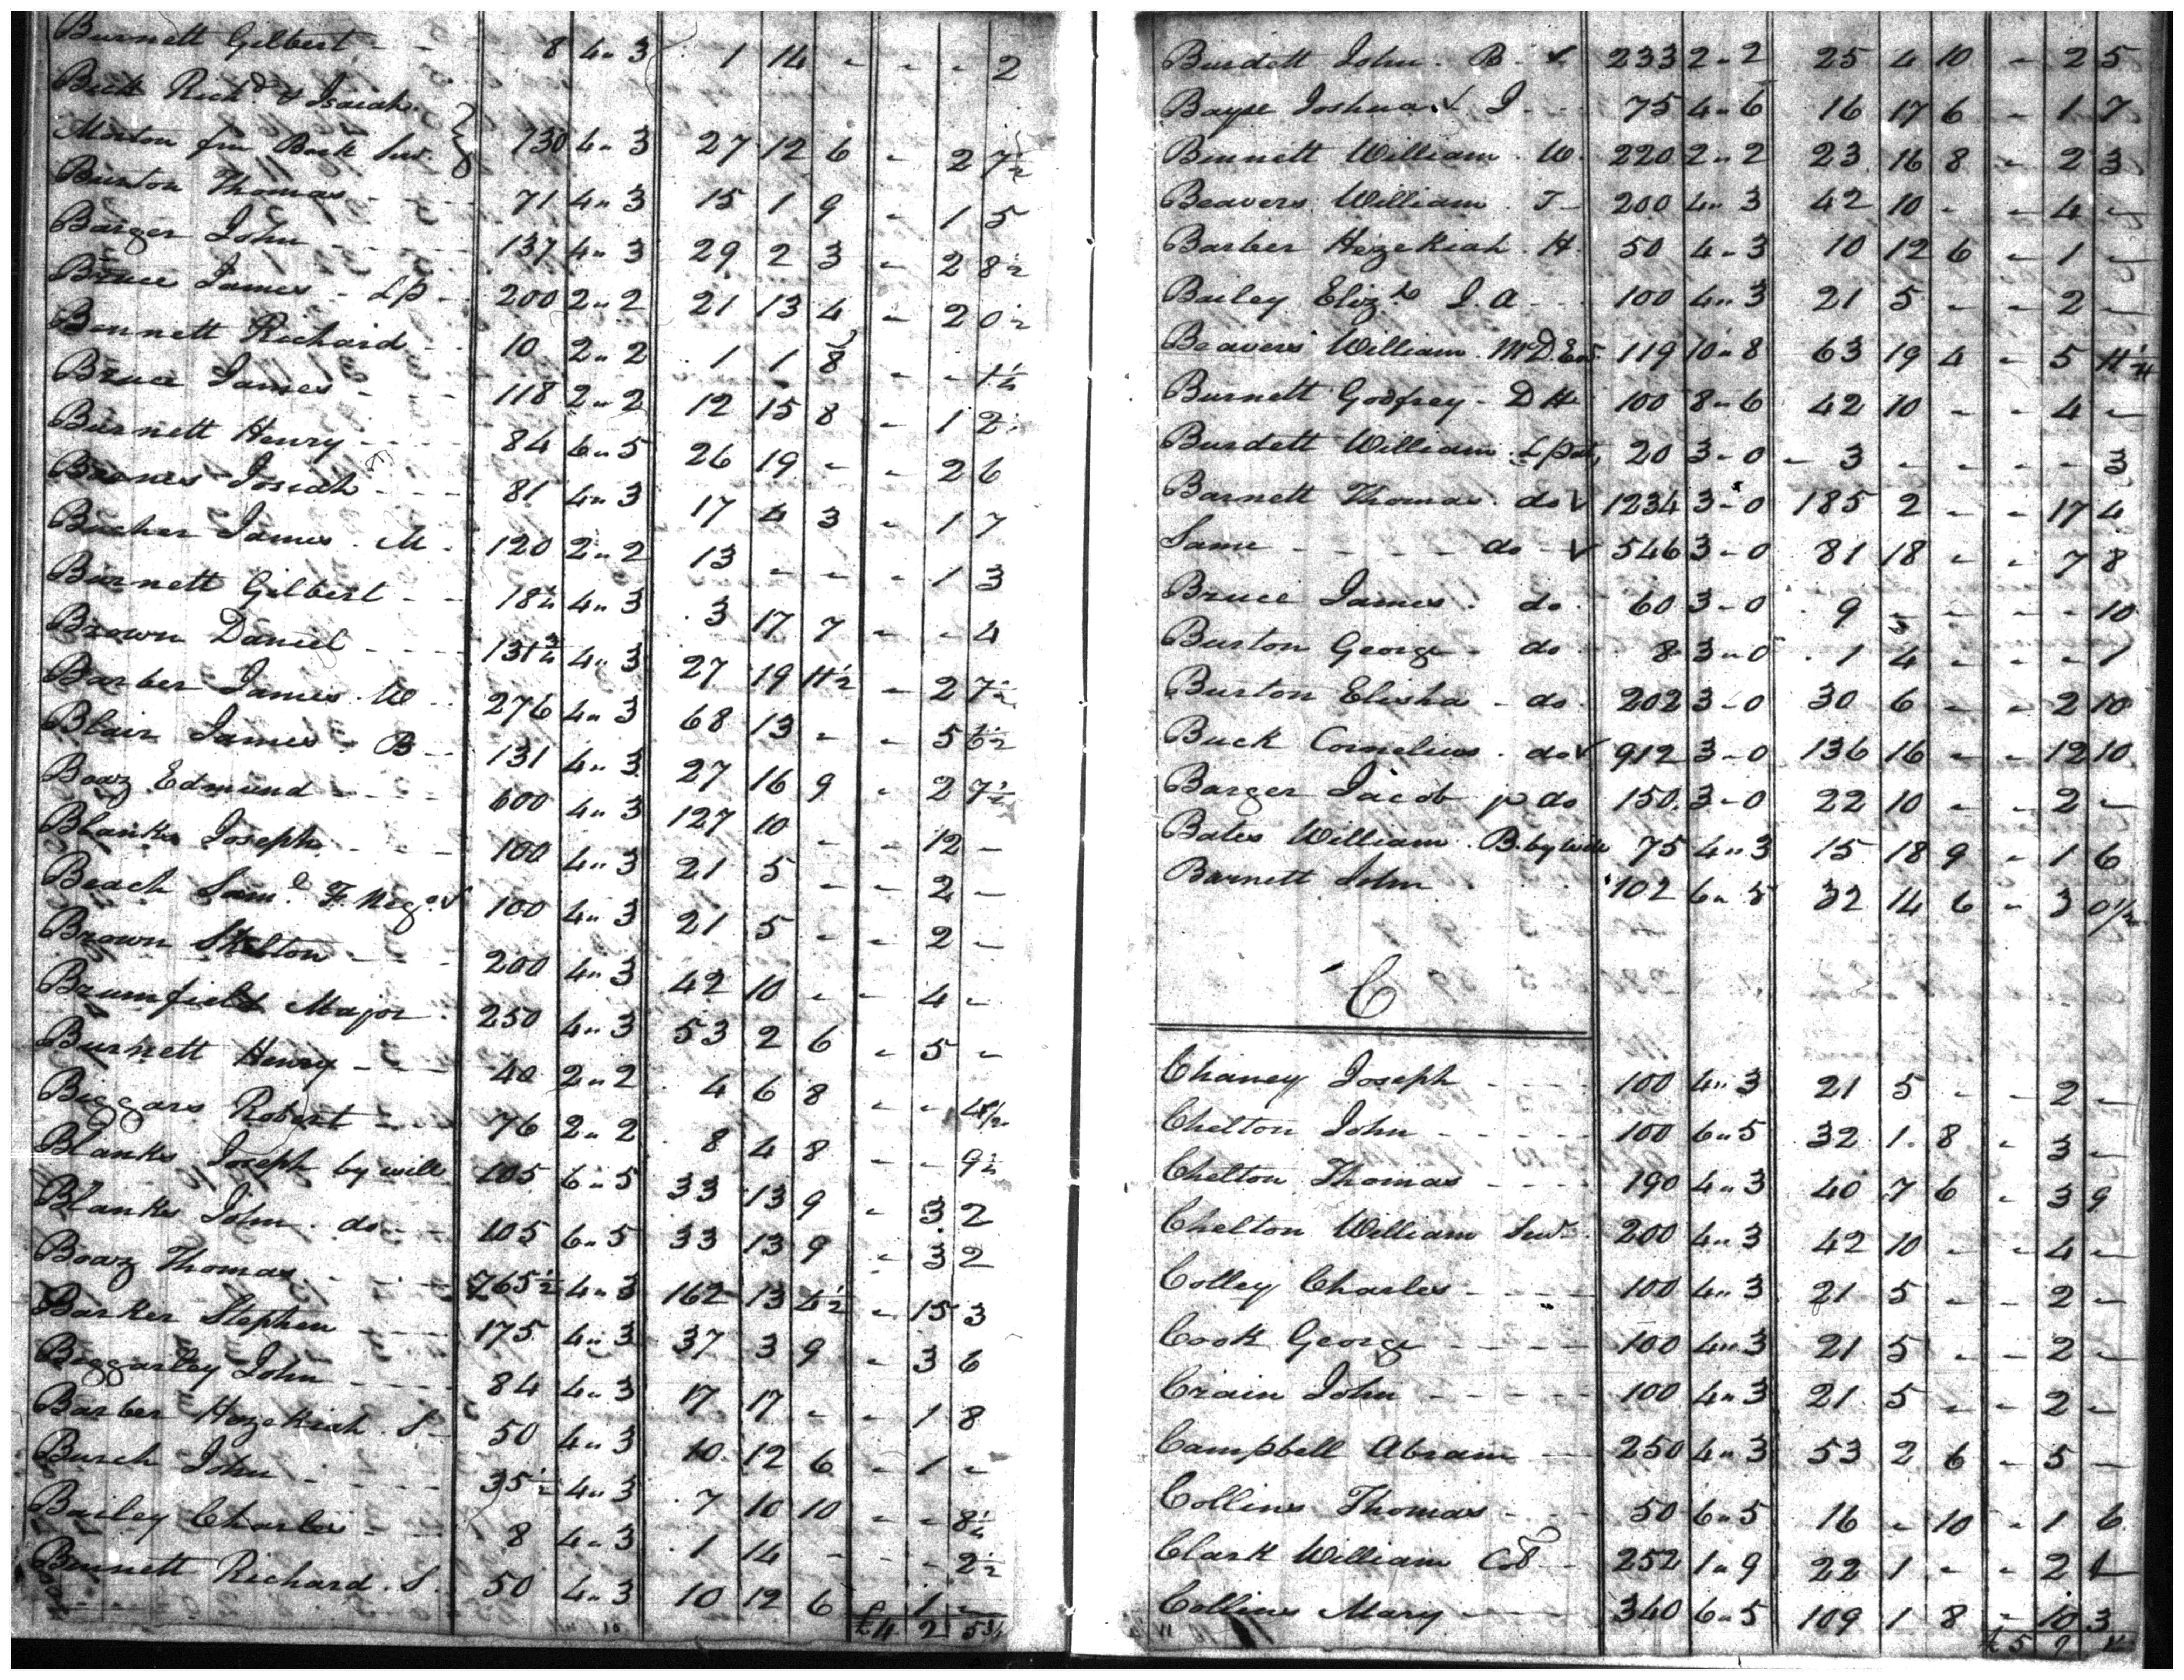 Burnett Gilbert - - - 8 4 " 3 1 14 - - - 2
Beck Richd & Isaiah
Morton fm Beck Sur. 130 4 " 3 27 12 6 - 2 7½
Burton Thomas - - - 71 4 " 3 15 1 9 - 1 5
Barger John - - - - 137 4 " 3 29 2 3 - 2 8½
Bruce James - LP - 200 2 " 2 21 13 4 - 2 0½
Bennett Richard - - 10 2 " 2 1 1 8 - - 1¼
Bruce James - - - 118 2 " 2 12 15 8 - 1 2
Burnett Henry - - - 84 6 " 5 26 19 - - 2 6
Barnes Josiah - - - 81 4 " 3 17 4 3 - 1 7
Bucher James . M - 120 2 " 2 13 - - - 1 3
Burnett Gilbert - - 18¼ 4 " 3 3 17 7 - - 4
Brown Daniel - - - 131¾ 4 " 3 27 19 11½ - 2 7½
Barber James . W - - 276 4 " 3 68 13 - - 5 6½
Blair James . B - - 131 4 " 3 27 16 9 - 2 7½
Boaz Edmund - - - 600 4 " 3 127 10 - - 12 -
Blanks Joseph - - - 100 4 " 3 21 5 - - 2 -
Beach Saml F. Nego ✓ 100 4 " 3 21 5 - - 2 -
Brown Skelton - - - 200 4 " 3 42 10 - - 4 -
Brumfield Major . 250 4 " 3 53 2 6 - 5 -
Burnett Henry - - - 40 2 " 2 4 6 8 - - 4½
Biggars Robert - - 76 2 " 2 8 4 8 - - 9½
Blanks Joseph by will 105 6 " 5 33 13 9 - 3 2
Blanks John . do - - 105 6 " 5 33 13 9 - 3 2
Boaz Thomas - - - 765½ 4 " 3 162 13 4½ - 15 3
Barker Stephen - - - 175 4 " 3 37 3 9 - 3 6
Beggarley John - - - 84 4 " 3 17 17 - - 1 8
Barber Hezekiah . S - 50 4 " 3 10 12 6 - 1 -
Burch John - - - - 35½ 4 " 3 7 10 10 - - 8½
Bailey Charles - - - 8 4 " 3 1 14 - - - 2½
Bennett Richard . S . 50 4 " 3 10 12 6 - 1 -
£4 2 5¾
Burdett John . B - ✓ 233 2 " 2 25 4 10 - 2 5
Bayse Joshua ✓ J - - 75 4 " 6 16 17 6 - 1 7
Bennett William . W . 220 2 " 2 23 16 8 - 2 3
Beavers William . T - 200 4 " 3 42 10 - - 4 -
Barber Hezekiah . H . 50 4 " 3 10 12 6 - 1 -
Bailey Elizh J. A - - 100 4 " 3 21 5 - - 2 -
Beavers William . 119 10 " 8 63 19 4 - 5 11¼
Burnett Godfrey - D H 100 8 " 6 42 10 - - 4 -
Burdett William . L Pat 20 3 - 0 - 3 - - - - 3
Barnett Thomas . do ✓ 1234 3 - 0 185 2 - - 17 4
Same - - - - - do - ✓ 546 3 - 0 81 18 - - 7 8
Bruce James . do . 60 3 - 0 9 - - - - 10
Burton George - do 8 3 " 0 1 4 - - - 1
Burton Elisha - do . 202 3 - 0 30 6 - - 2 10
Buck Cornelius . do ✓ 912 3 - 0 136 16 - - 12 10
Barger Jacob p do 150 3 - 0 22 10 - - 2 -
Bates William . B. by will 75 4 " 3 15 18 9 - 1 6
Barnett John 102 6 " 5 32 14 6 - 3 0½
C
Chaney Joseph - - - - 100 4 " 3 21 5 - - 2 -
Chelton John - - - - - 100 6 " 5 32 1 8 - 3 -
Chelton Thomas - - - - 190 4 " 3 40 7 6 - 3 9
Chelton William Sur . 200 4 " 3 42 10 - - 4 -
Colley Charles - - - - 100 4 " 3 21 5 - - 2 -
Cook George - - - - - 100 4 " 3 21 5 - - 2 -
Crain John - - - - - 100 4 " 3 21 5 - - 2 -
Campbell Abram - - 250 4 " 3 53 2 6 - 5 -
Collins Thomas - - - 50 6 " 5 16 - 10 - 1 6
Clark William Col - - 252 1 " 9 22 1 - - 2 1
Collins Mary - - - 340 6 " 5 109 1 8 - 10 3
£5 9